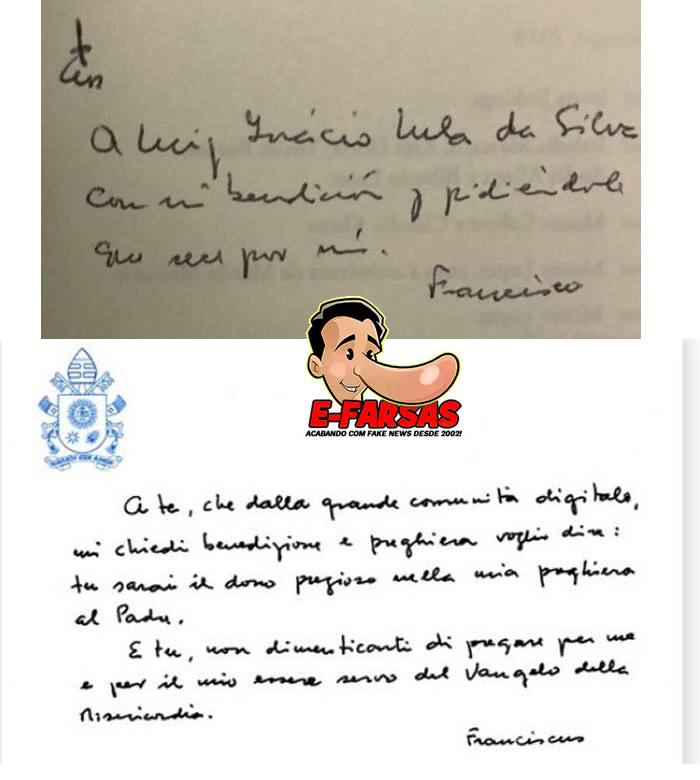 A Luiz Inácio Lula da Silva
con mi bendición y pidiéndole
que rece por mí.
Francisco
E-FARSAS
ACABANDO COM FAKE NEWS DESDE 2002!
A te, che dalla grande comunità digitale,
mi chiedi benedizione e preghiera voglio dire:
tu sarai il dono prezioso nella mia preghiera
al Padre.
E tu, non dimenticarti di pregare per me
e per il mio essere servo del Vangelo della
Misericordia.
Franciscus